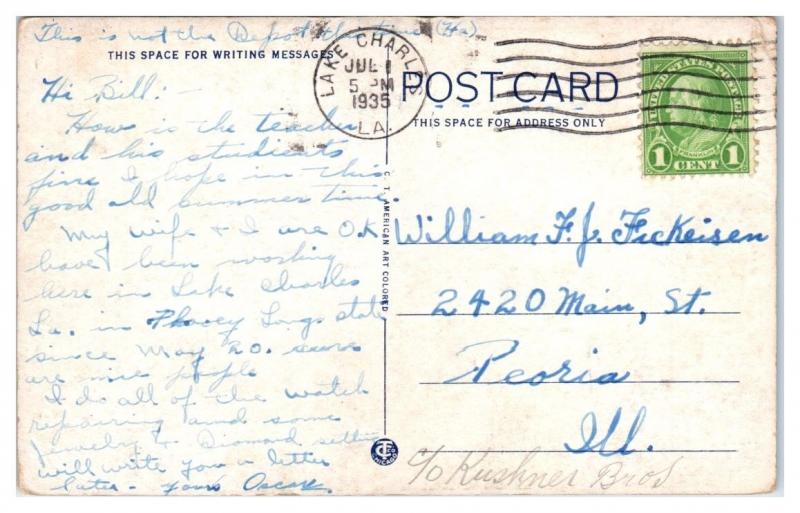 This is not the Depot this time (Ha)
THIS SPACE FOR WRITING MESSAGES
Hi Bill:-
How is the teacher
and his studients
fine I hope in this
good old summer time.
My wife & I are O.K
have been working
here in Lake Charles
La. in Longs state
since May 20. sure
are nice people
I do all of the watch
repairing and some
jewelry & Diamond setting
will write you a letter
later - yours Oscar.
C. T. AMERICAN ART COLORED
LAKE CHARLES
JUL 1
5 PM
1935
LA.
POST CARD
THIS SPACE FOR ADDRESS ONLY
UNITED STATES POSTAGE
FRANKLIN
1 CENT 1
William F. J. Fickeisen
2420 Main, St.
Peoria
Ill.
c/o Kushner Bros
CHICAGO